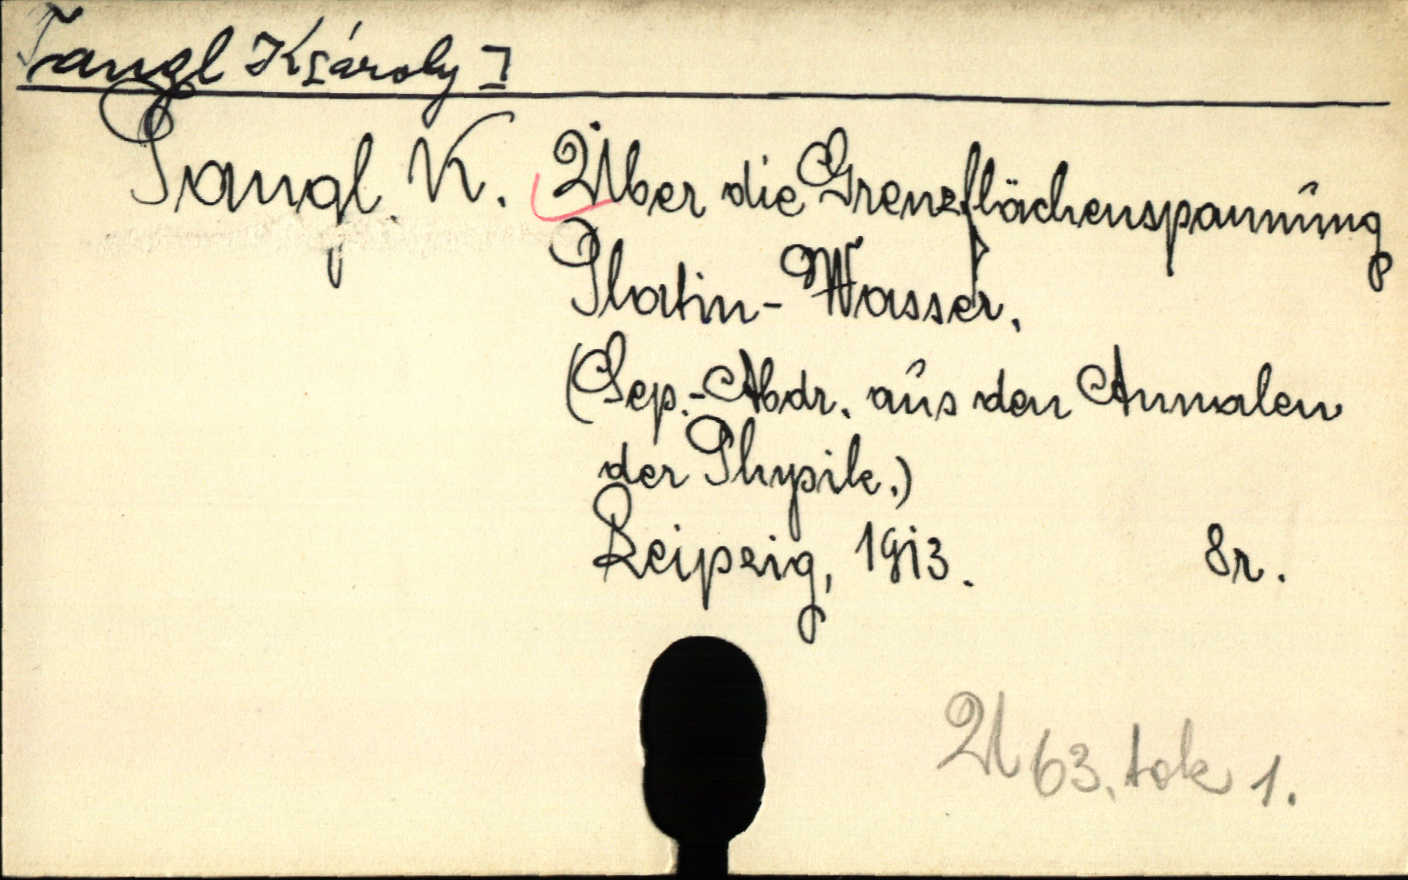 Tangl Károly I
Tangl. K. Über die Grenzflächenspannung
Platin-Wasser.
(Sep.-Abdr. aus den Annalen
der Physik.)
Leipzig, 1913. 8r.
U 63. tok 1.